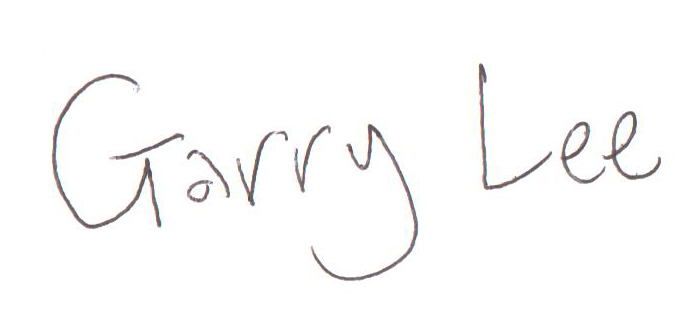 Garry Lee